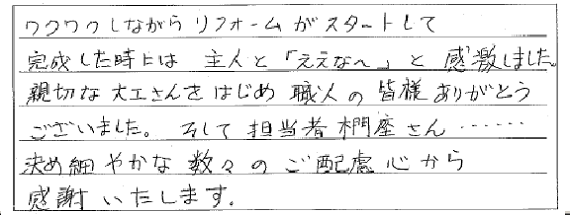 ワクワクしながら リフォームがスタートして
完成した時には 主人と「ええなへ」と 感激しました。
親切な大工さんをはじめ 職人の皆様ありがとう
ございました。 そして 担当者 椚座さん……
決め細やかな 数々の ご配慮 心から
感謝いたします.